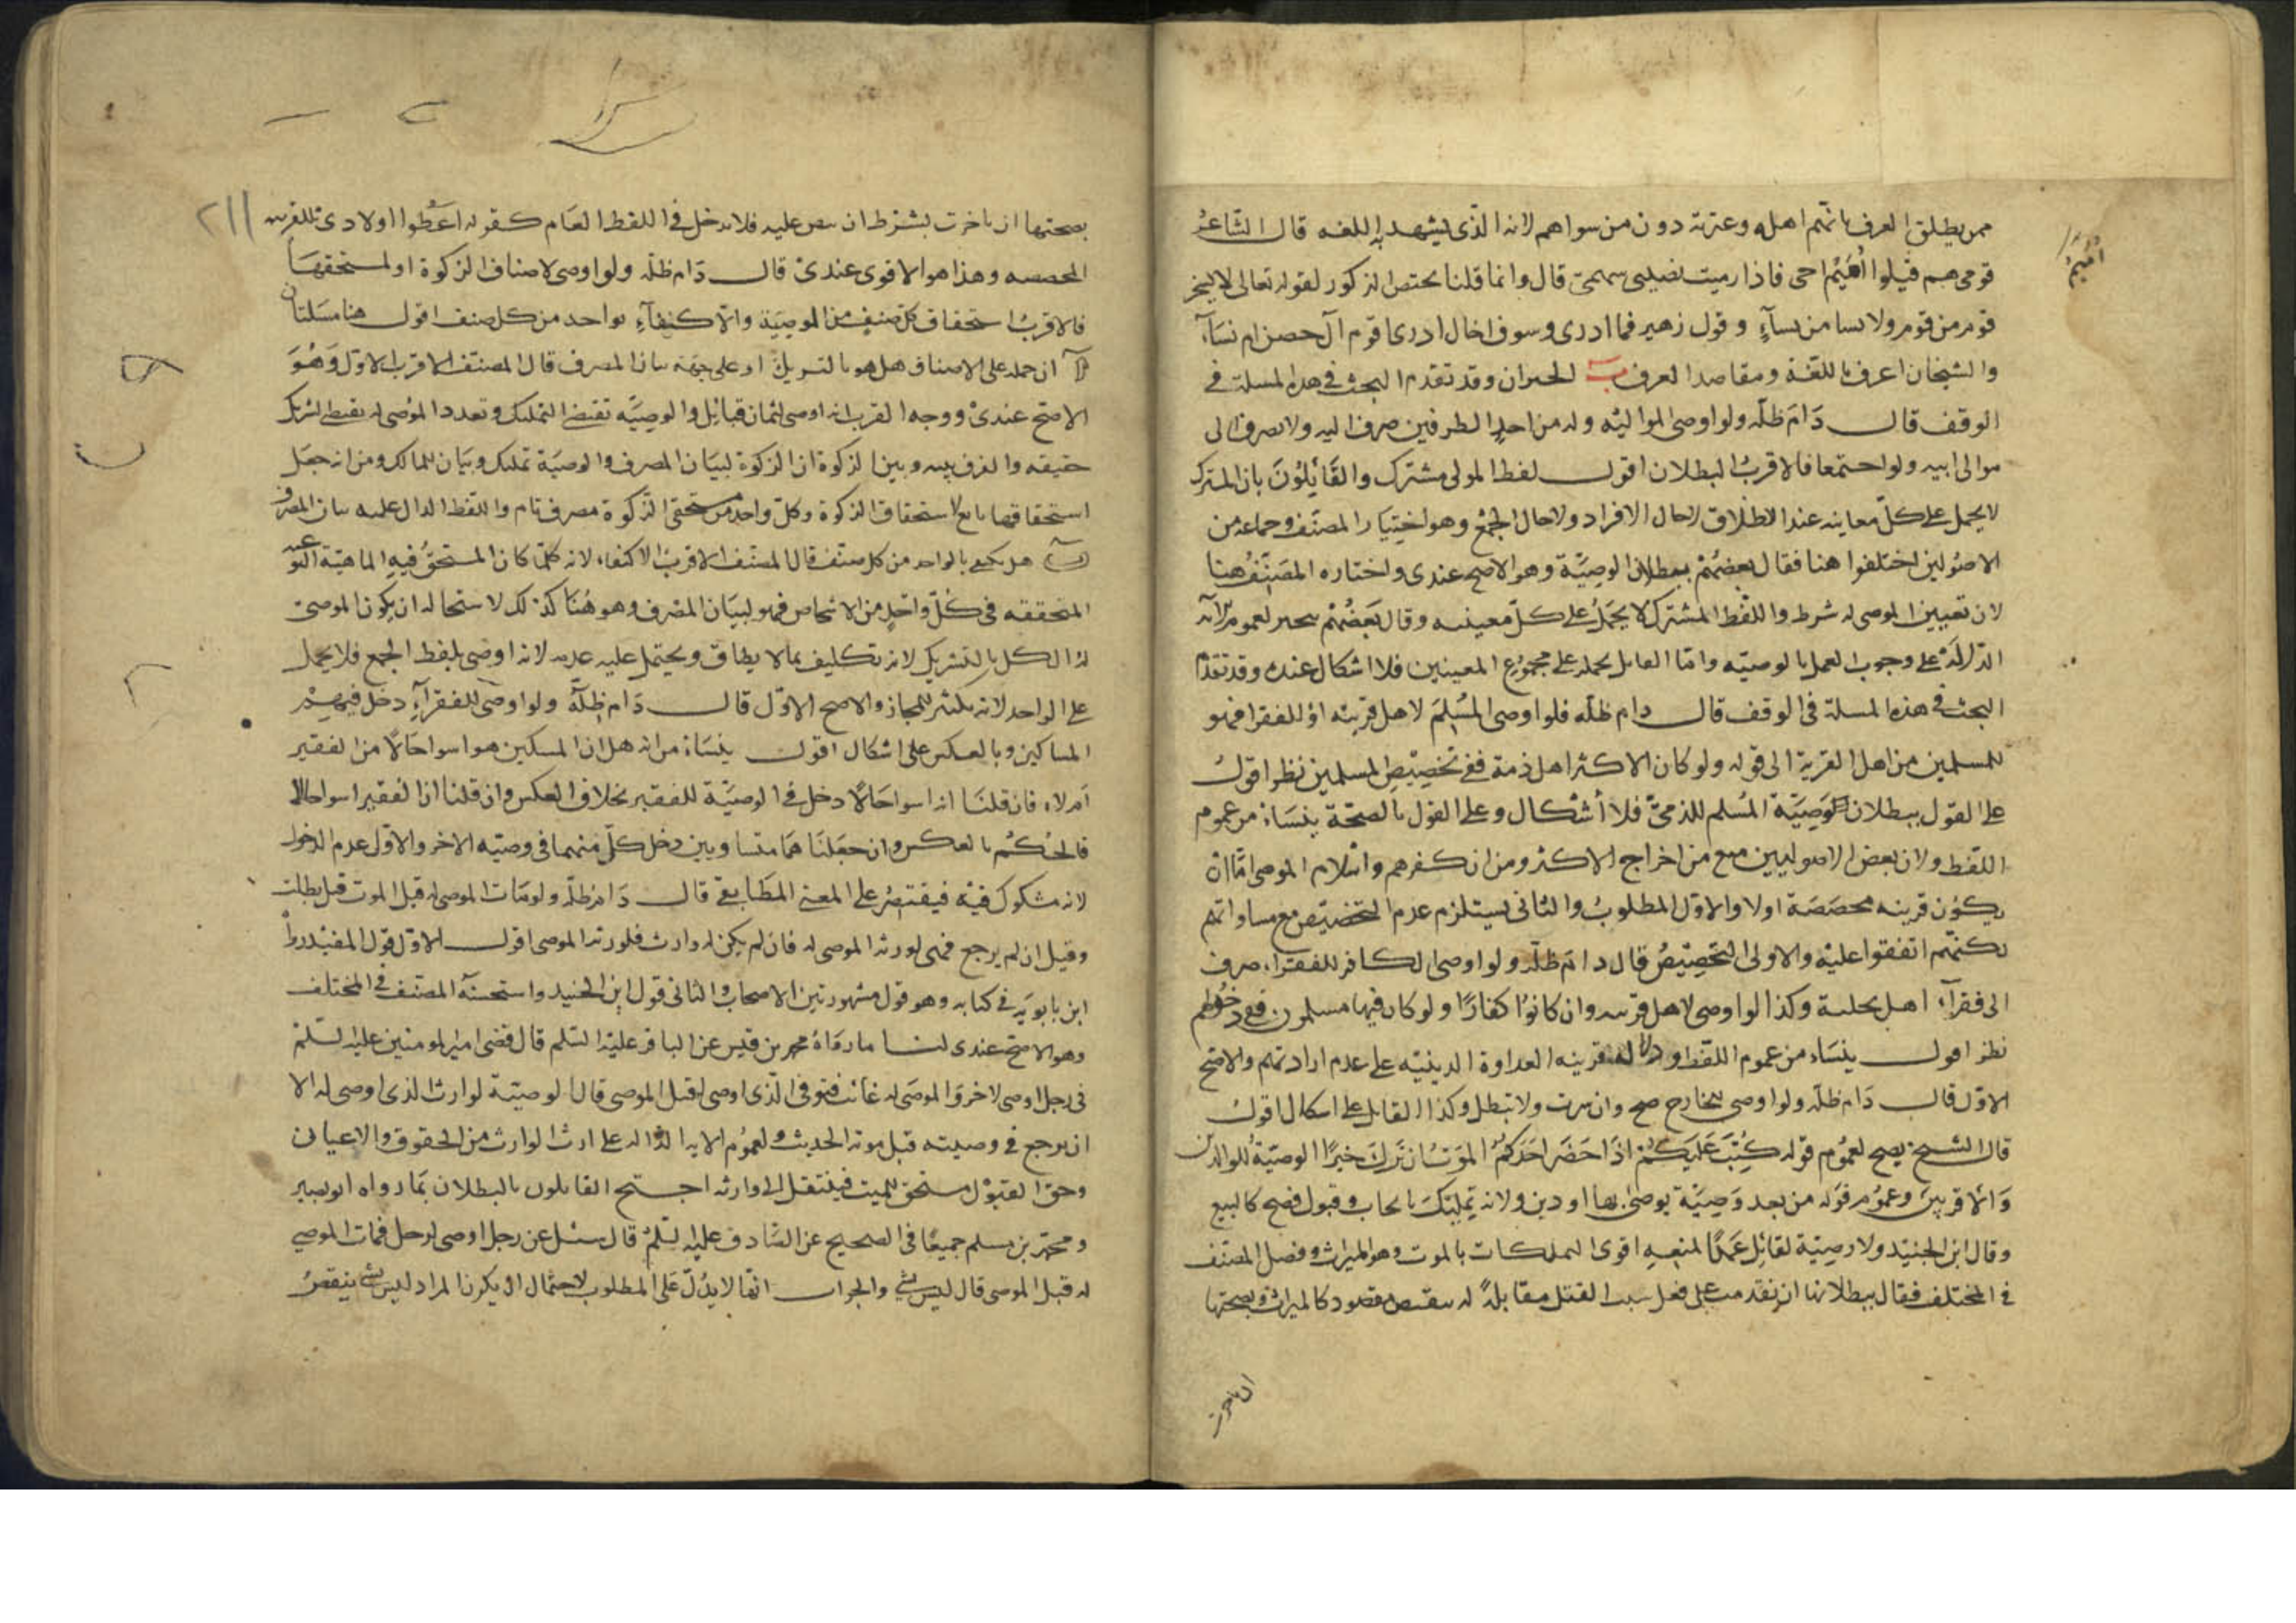 ممن يطلق العرف بانهم اهله وعترته دون من سواهم لانه الذى يشهد به اللغه قال الشاعر
قومى هم قتلوا أميم اخى فاذا رميت يصيبنى سهمى قال وانما قلنا يختص الذكور لقوله تعالى لا يسخر
قوم من قوم ولا نسا من نسآء وقول زهير فما ادرى وسوف اخال ادرى اقوم آل حصن ام نسآء
والشيخان اعرف باللغة ومقاصد العرف ب الجيران وقد تقدم البحث فى هذه المسلة فى
الوقف قال دَامَ ظلّه ولو اوصى لمواليه وله من احد الطرفين صرف اليه ولا يصرف الى
موالى ابيه ولو اجتمعا فالاقربُ البطلان اقول لفظ المولى مشترك والقَائِلُونَ بان المشترك
لا يحمل على كلّ معانيه عند الاطلاق لا حال الافراد ولا حال الجمْع وهو اختيار المصنّف وجماعة من
الاصُوليّن اختلفوا هنا فقال بعضُهُمْ ببطلان الوصِيَّة وهو الاصح عندى واختاره المصَنِّفُ هنا
لان تعيين الموصى له شرط واللفظ المشترك لا يحْمَلُ على كلّ معينيه وقال بَعضُهُمْ يصح لعموم
الدّلالَة على وجوب العمل بالوصيّه وامّا القايل بحمله على مجموع المعينين فلا اشكال عنده وقد تقدّم
البحث فى هذه المسلة فى الوقف قال دام ظلّه فلو اوصى المسْلِمَ لاهل قريته اوْ للفقرا فهو
للمسلمين من اهل القرية الى قوله ولو كان الاكثر اهل ذمة ففى تخصِيْصِ المسلمين نظر اقولُ
على القول ببطلان وَصِيَّةِ المُسْلم للذمىّ فلا أشكال وعلى القول بالصحّة ينشَاءُ من عموم
اللفظ ولان بعض الاصوليين منع من اخراج الاكثر ومن ان كفرهم واسْلام الموصى امّا ان
يكون قرينه مخصّصَة اولا والاوّل المطلوبُ والثانى يستلزم عدم التخصيص مع مساواتهم
لكنّهم اتفقوا عليْه والاولى التخصِيْصُ قال دام ظلّه ولو اوصى الكافر للفقراء صرف
الى فقرآء اهل نحلته وكذا لو اوصى لاهل قريته وان كانوُا كفارًا ولو كان فيها مسلمون ففى دخولهم
نظر اقول ينشَاء من عموم اللّفظ و دلالة قرينه العداوة الدينيّه على عدم ارادتهم والاصح
الاوّل قال دَام ظلّه ولو اوصى للجارح صح وان سرت ولا تبطل وكذا القاتل على اشكال اقولُ
قال الشيخ يصح لعمُوم قوله كُتِبَ عَلَيْكُمْ اذَا حَضَرَ احَدَكُمُ المَوْتُ ان تَرَكَ خيرًا الوصيّة للوالدين
وَالاقربين وعمُوم قوله من بعد وَصِيَّة يوصى بها او دين ولانه تمليك بايجاب وقبول فصح كالبيع
وقال ابن الجنيد ولا وصيّة لقاتل عَمدًا لمنعهِ اقوى المملكات بالموت وهو الميراث وفصل المصَنف
فى المختلف فقال ببطلانها ان تقدمت على فعل سبب القتل مقَابلةً له بنقيض مقصوده كالميراث وبصحتها
ان تاخرت
أُمَيْمَ
٢١١
بصحتها ان تاخرت بشرط ان ينص عليه فلا يدخل فى اللفظ العَام كقوله اعْطوا اولادى للقرينه
المخصصه وهذا هو الاقوى عندىْ قال دَام ظلّه ولو اوصى لاصناف الزكوة او لمستحقّهَا
فالاقربُ استحقاق كلّ صنيفٍ من الوصِيَة والاكتفآءِ بواحد من كل صنف اقول هنا مَسئلتان
آ ان حمله على الاصناف هل هو بالتسويةِ او على جهَة بيان المصرف قال المصَنّف الاقرب الاوّل وَهُوَ
الاصَح عندىْ ووجه القرب انه اوصى لثمان قبائل والوصِيَّه تقتضى التمليك وتعدد الموُصى له يقتضى التشريك
حقيقه والفرق بينه وبين الزكوة ان الزكوة لبيَان المصرف والوصيَة تمليك وبَيَان للمالك ومن انه جعَل
استحقاقها تابعًا لاستحقاق الزكوة وكلّ واحد من مستحقى الزكوة مصرف تام واللفظ الدال عليه بيان المصرف
ب هل يكفى بالواحد من كل صنف قال المصنّف الاقربُ الاكتفاء لانه كلّما كان المستحقُّ فيهِ الماهيّة النوعيه
المتحققه فى كُلّ واحِدٍ من الاشخاص فهو لبيَان المصْرف وهو هُنَا كذلك لاستحاله ان يكون الموصى
له الكل بالتشريك لانه تكليف بما لا يطاق ويحتمل عليه عدمه لانه اوصى بلفظ الجمع فلا يحمل
على الواحد لانه تكثير للمجاز والاصح الاوّل قال دَام ظِلّهُ ولو اوصَى للفقرآءِ دخل فيهِمْ
المساكين وبالعكس على اشكال اقول ينشَاءُ من انه هل ان المسكين هو اسوا حَالاً من الفقير
اَم لا، فان قلنَا انه اسوا حَالاً دخل فى الوصيّة للفقير بخلاف العكس وان قلنا ان الفقير اسوا حالا
فالحُكمُ بالعكس وان جعَلنَا هُمَا متساويين دخل كلّ منهما فى وصيّه الاخر والاوّل عدم الدخول
لانه مشكوك فيْه فيقتصِرُ على المعنى المطَابقى قال دَام ظلّه ولو مَات الموصى له قبل الموت قيل بطلت
وقيل ان لم يرجع فهى لورثه الموصى له فان لم يكن له وارث فلورثه الموصى اقول الاوّل قول المفيْد ورواه
ابن بابويَهِ فى كتابه وهو قول مشهور بين الاصحاب والثانى قول ابْن الجنيد واستحسنَه المصَنّف فى المختلف
وهو الاصَحّ عندى لنا ما روَاهُ محمد بن قيس عن الباقر عليْه السّلم قال قضى امير المومنين عليه السّلمْ
فى رجل اوصى لاخر والموصَى له غائب فتوفى الّذى اوصى له قبل الموصى قال الوصيّة لوارث الذى اوصى له الا
ان يرجع فى وصيته قبل موته الحديث ولعمُوم الايه الدّاله على ارث الوارث من الحقوق والاعيان
وحق القبوُل مستحق للميت فينتقل الى وارثه احتج القائلون بالبطلان بمَا رواه ابو بصير
ومحمّد بن مسلم جميعًا فى الصحيح عن الصّادق عليه السّلمُ قال سئل عن رجل اوصى لرجل فمَات الموصى
له قبل الموصى قال ليس بشئ والجواب انّها لا يَدُلّ عَلى المطلوب لاحتمال ان يكون المراد ليس بشئ ينقصُ